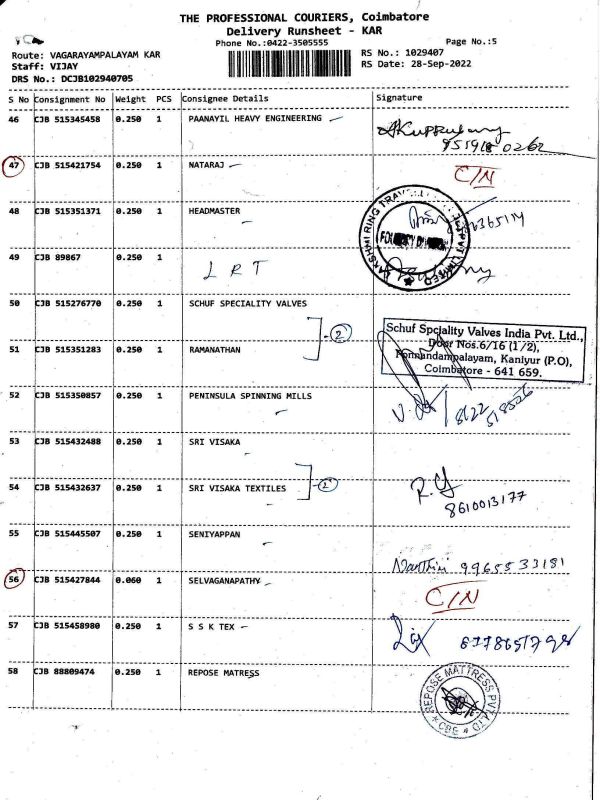 THE PROFESSIONAL COURIERS, Coimbatore
Delivery Runsheet - KAR
Phone No.:0422-3505555
Page No.:5
Route: VAGARAYAMPALAYAM KAR
RS No.: 1029407
Staff: VIJAY
RS Date: 28-Sep-2022
DRS No.: DCJB102940705
S No Consignment No Weight PCS Consignee Details Signature
46 CJB 515345458 0.250 1 PAANAYIL HEAVY ENGINEERING
47 CJB 515421754 0.250 1 NATARAJ C/N
48 CJB 515351371 0.250 1 HEADMASTER
49 CJB 89867 0.250 1
L R T
50 CJB 515276770 0.250 1 SCHUF SPECIALITY VALVES
2
Schuf Spciality Valves India Pvt. Ltd.,
Door Nos.6/16 (1/2),
51 CJB 515351283 0.250 1 RAMANATHAN
Kaniyur (P.O),
Coimbatore - 641 659.
52 CJB 515350857 0.250 1 PENINSULA SPINNING MILLS
53 CJB 515432488 0.250 1 SRI VISAKA
2
54 CJB 515432637 0.250 1 SRI VISAKA TEXTILES
8610013177
55 CJB 515445507 0.250 1 SENIYAPPAN
9965533181
56 CJB 515427844 0.060 1 SELVAGANAPATHY
C/N
57 CJB 515458980 0.250 1 S S K TEX
58 CJB 88809474 0.250 1 REPOSE MATRESS
REPOSE MATTRESS PVT LTD
CBE